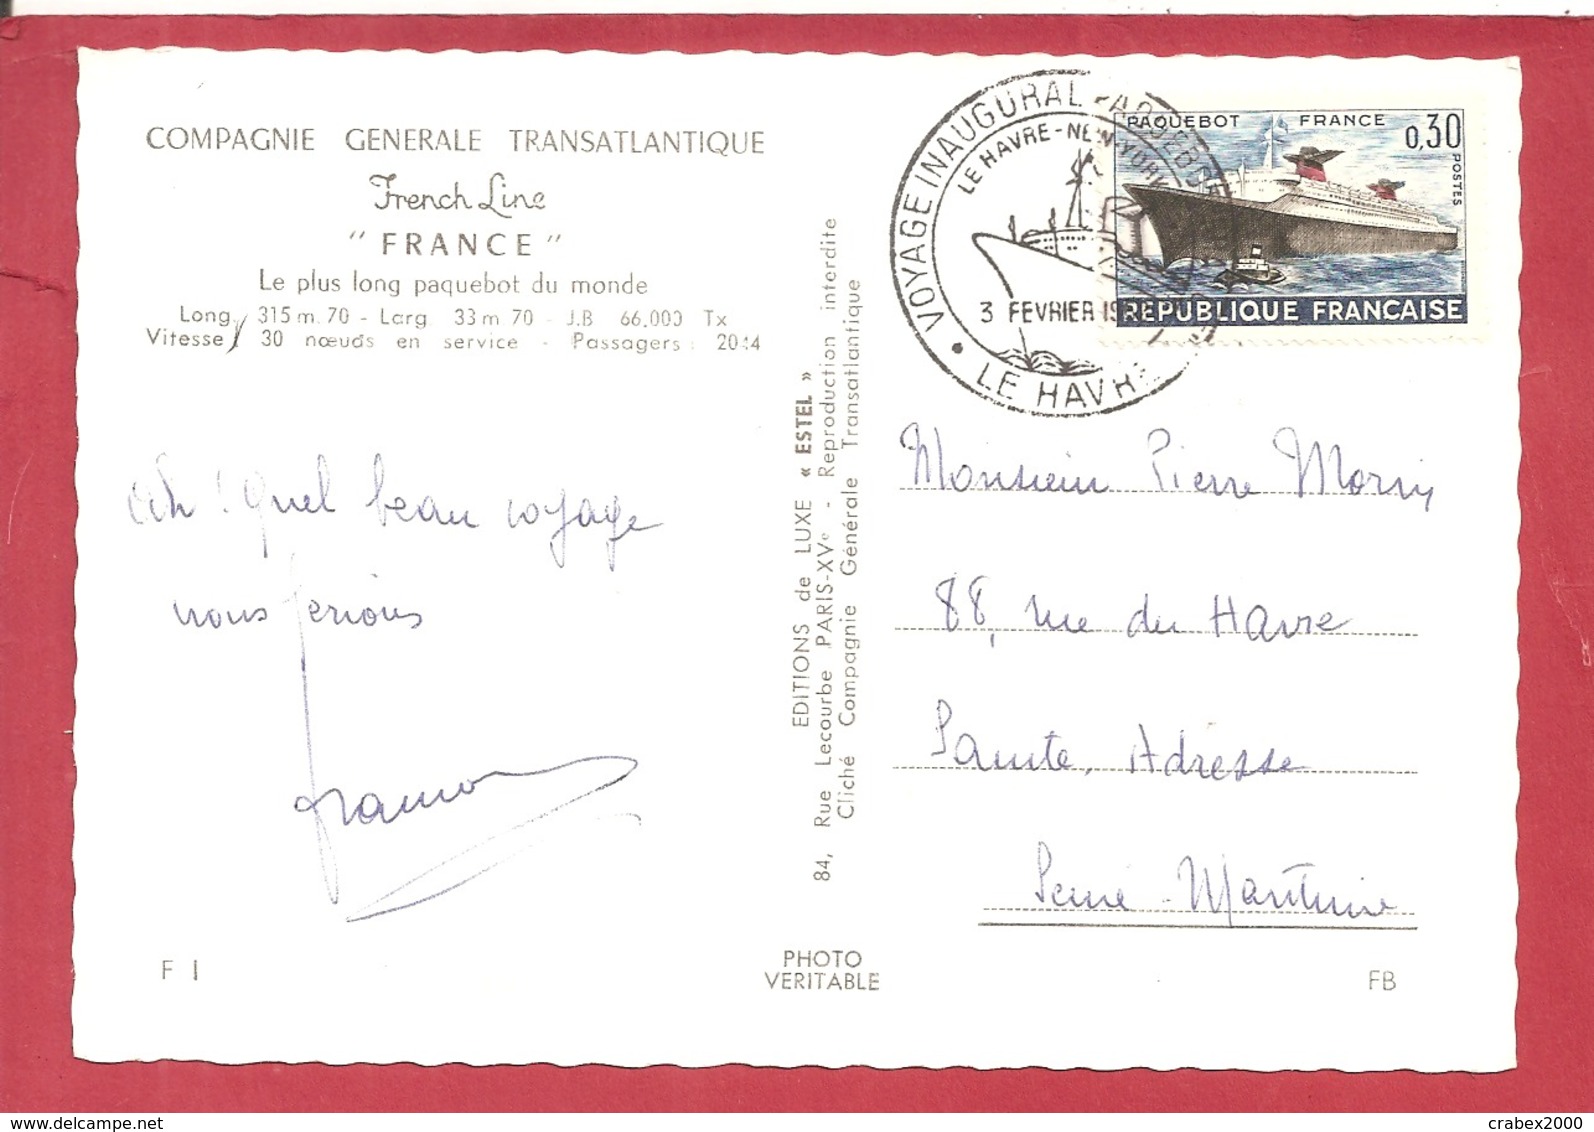 COMPAGNIE GENERALE TRANSATLANTIQUE
French Line
" FRANCE "
Le plus long paquebot du monde
Long. 315 m. 70 - Larg 33 m 70 - J.B 66.000 Tx
Vitesse 30 nœuds en service - Passagers : 2044
Ah ! Quel beau voyage
nous ferions
F I
EDITIONS de LUXE « ESTEL »
84, Rue Lecourbe PARIS-XVe - Reproduction interdite
Cliché Compagnie Générale Transatlantique
PHOTO
VERITABLE
VOYAGE INAUGURAL PAQUEBOT
LE HAVRE - NEW-YORK
3 FEVRIER 19
LE HAVRE
PAQUEBOT FRANCE
0,30
POSTES
REPUBLIQUE FRANCAISE
Monsieur Pierre Morin
88, rue du Havre
Sainte Adresse
Seine-Maritime
FB
crabex2000